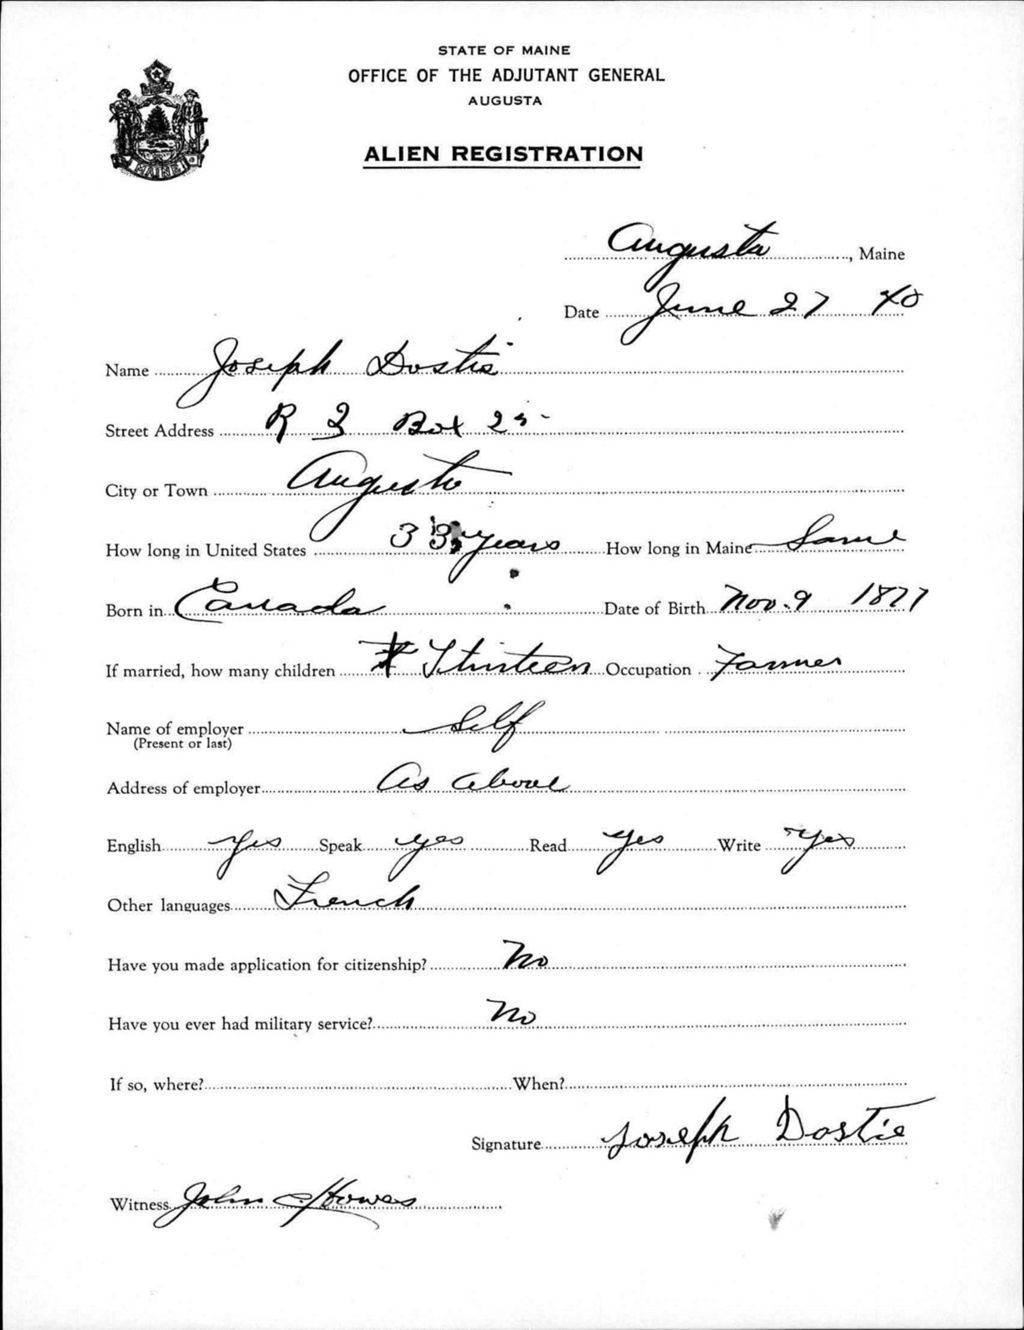 STATE OF MAINE
OFFICE OF THE ADJUTANT GENERAL
AUGUSTA
ALIEN REGISTRATION
MAINE
Augusta, Maine
Date June 27 40
Name Joseph Dostie
Street Address R Box
City or Town Augusta
How long in United States 33 years How long in Maine Same
Born in Canada Date of Birth Nov. 9 1877
If married, how many children Thirteen Occupation Farmer
Name of employer Self
(Present or last)
Address of employer As above
English Yes Speak yes Read Yes Write Yes
Other languages French
Have you made application for citizenship? No
Have you ever had military service? No
If so, where? When?
Signature Joseph Dostie
Witness John Howes